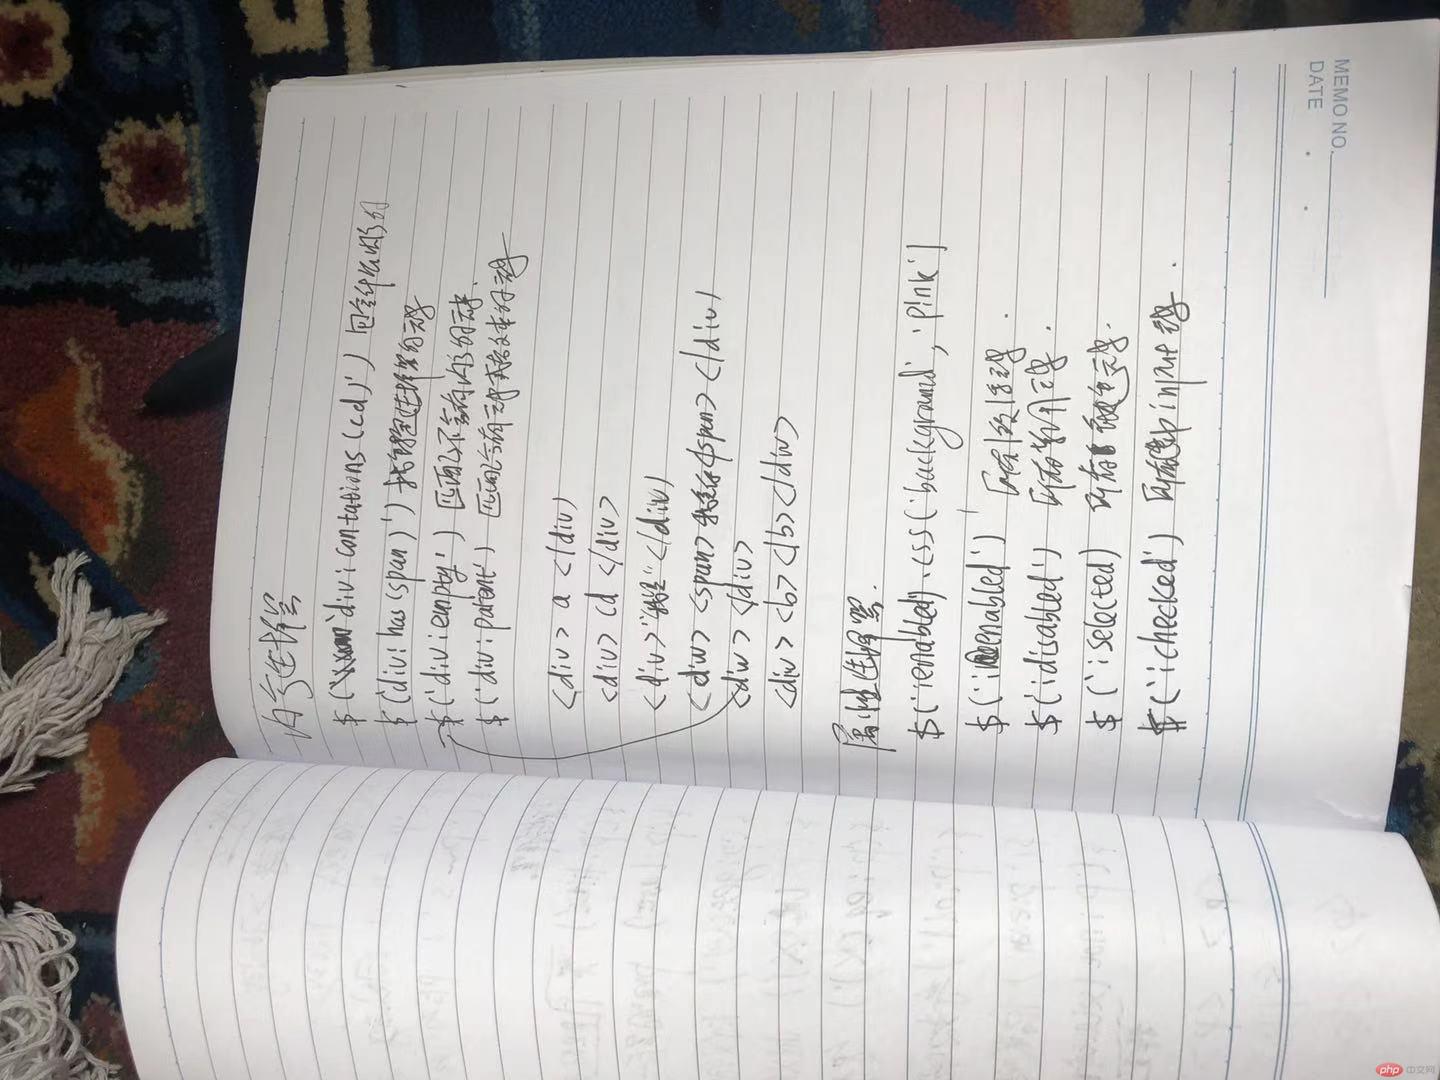 MEMO NO.
DATE
内容选择器
$('div:contations(cd)') 包含cd内容的
$(div:has(span)')
$('div:empty') 匹配不含有内容的元素.
$('div:parent') 匹配含有子元素或文本的元素
<div> a </div>
<div> cd </div>
<div> </div>
<div> <span> </span> </div>
<div> </div>
<div> <b> </b> </div>
属性选择器.
$(':enabled).css('background','pink')
$(':enabled') 所有激活元素.
$(':disabled') 所有禁用元素.
$(':selected) 所有被选元素.
$(':checked') 所有被选中input元素.
php 中文网